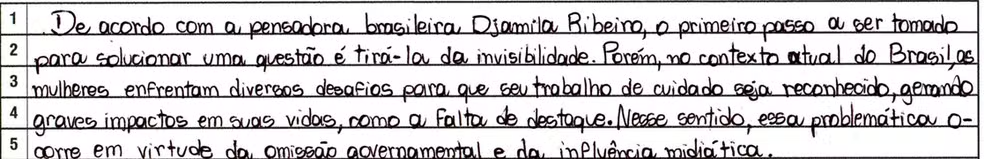 1 De acordo com a pensadora brasileira Djamila Ribeiro, o primeiro passo a ser tomado
2 para solucionar uma questão é tirá-la da invisibilidade. Porém, no contexto atual do Brasil, as
3 mulheres enfrentam diversos desafios para que seu trabalho de cuidado seja reconhecido, gerando
4 graves impactos em suas vidas, como a falta de destaque. Nesse sentido, essa problemática o-
5 corre em virtude da omissão governamental e da influência midiática.